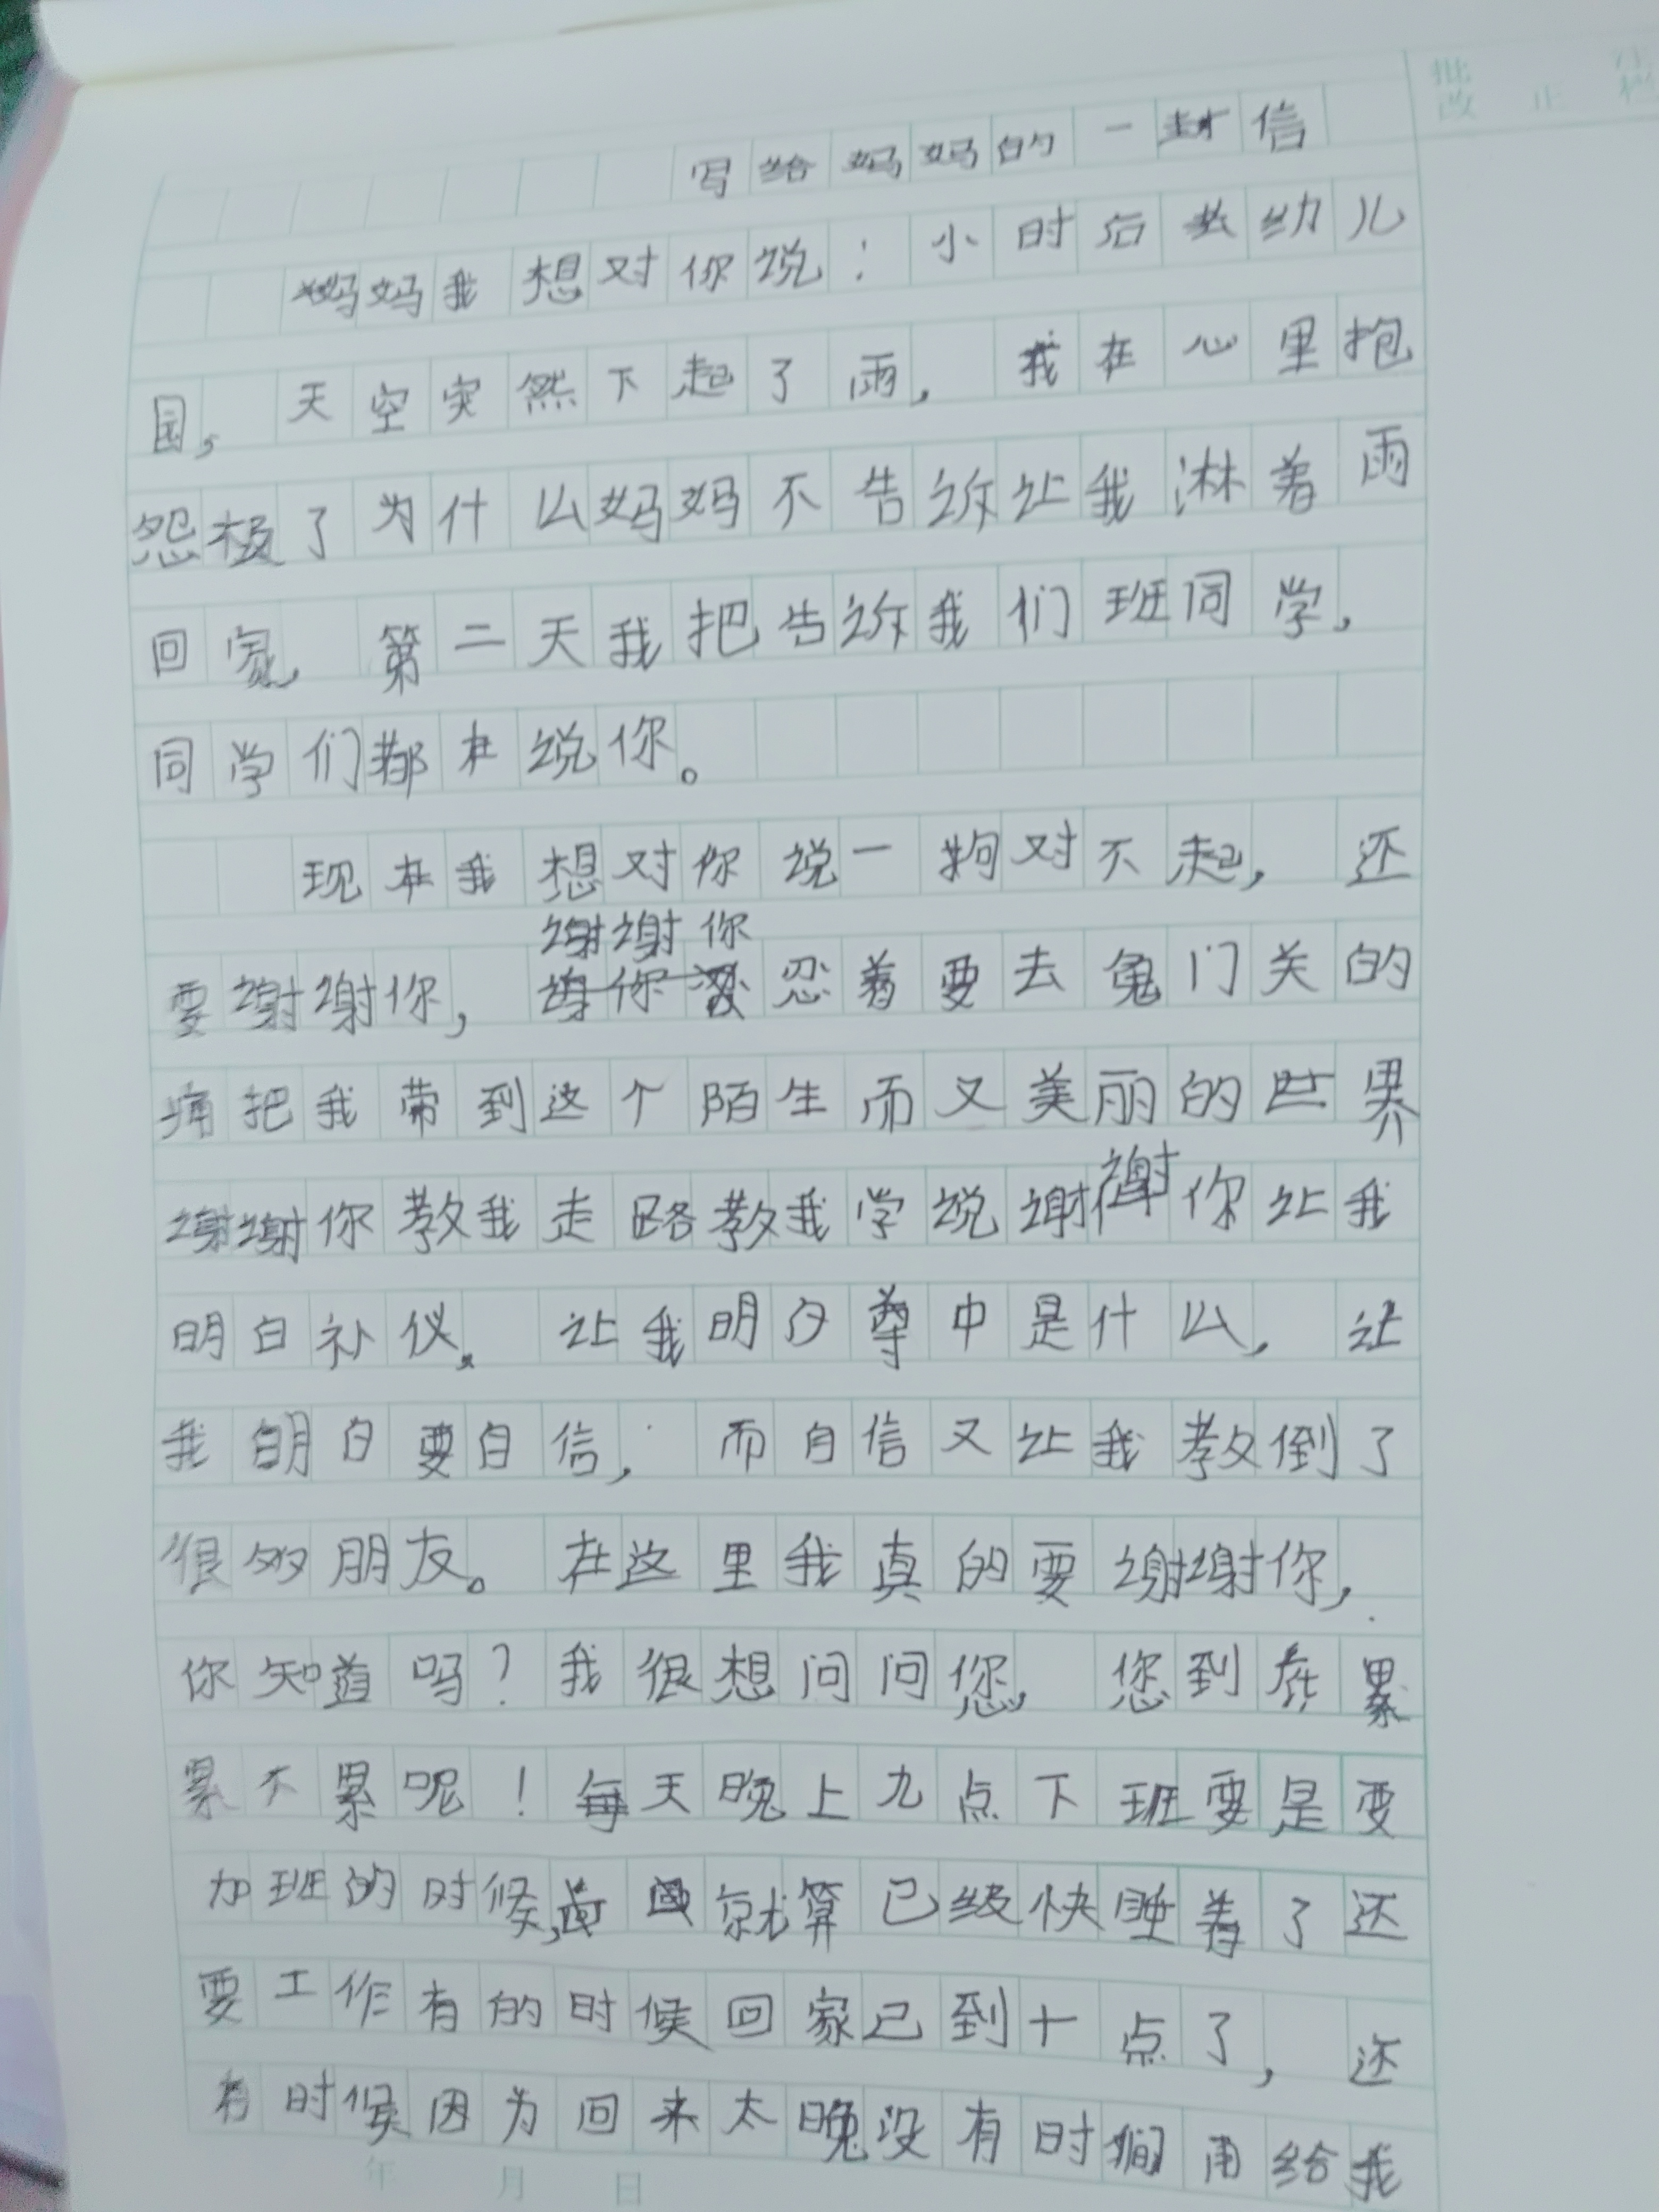 批 注
改 正 栏
写给妈妈的一封信
妈妈我想对你说：小时后去幼儿
国，天空突然下起了雨，我在心里抱
怨极了为什么妈妈不告诉让我淋着雨
回家，第二天我把告诉我们班同学，
同学们都在说你。
现在我想对你说一狗对不起，还
谢谢你
要谢谢你，忍着要去鬼门关的
痛把我带到这个陌生而又美丽的世界
谢谢你教我走路教我学说谢谢你让我
明白礼仪，让我明夕尊中是什么，让
我明白要自信，而自信又让我教倒了
很多朋友。在这里我真的要谢谢你，
你知道吗？我很想问问您，您到底累
累不累呢！每天晚上九点下班要是要
加班的时候，就算已经快睡着了还
要工作有的时候回家已到十点了，还
有时候因为回来太晚没有时间用给我
年 月 日